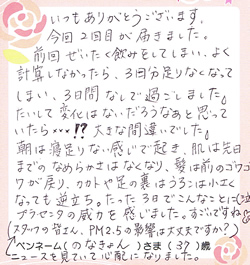 いつもありがとうございます。
今回2回目が届きました。
前回ぜいたく飲みをしてしまい、よく
計算しなかったら、3回分足りなくなって
しまい、3日間なしで過ごしました。
たいして変化はないだろうなぁと思って
いたら×××!? 大きな間違いでした。
朝は寝足りない感じで起き、肌は先日
までのなめらかさはなくなり、髪は前のゴワゴ
ワが戻り、カカトや足の裏はうろこは小さく
なっても逆立ち。たった3日でこんなことに
プラセンタの威力を感じました。すごいですね
(スタッフの皆さん、PM2.5の影響は大丈夫ですか?
ペンネーム(のなきょん)さま(37)歳
ニュースを見ていて心配になりました。